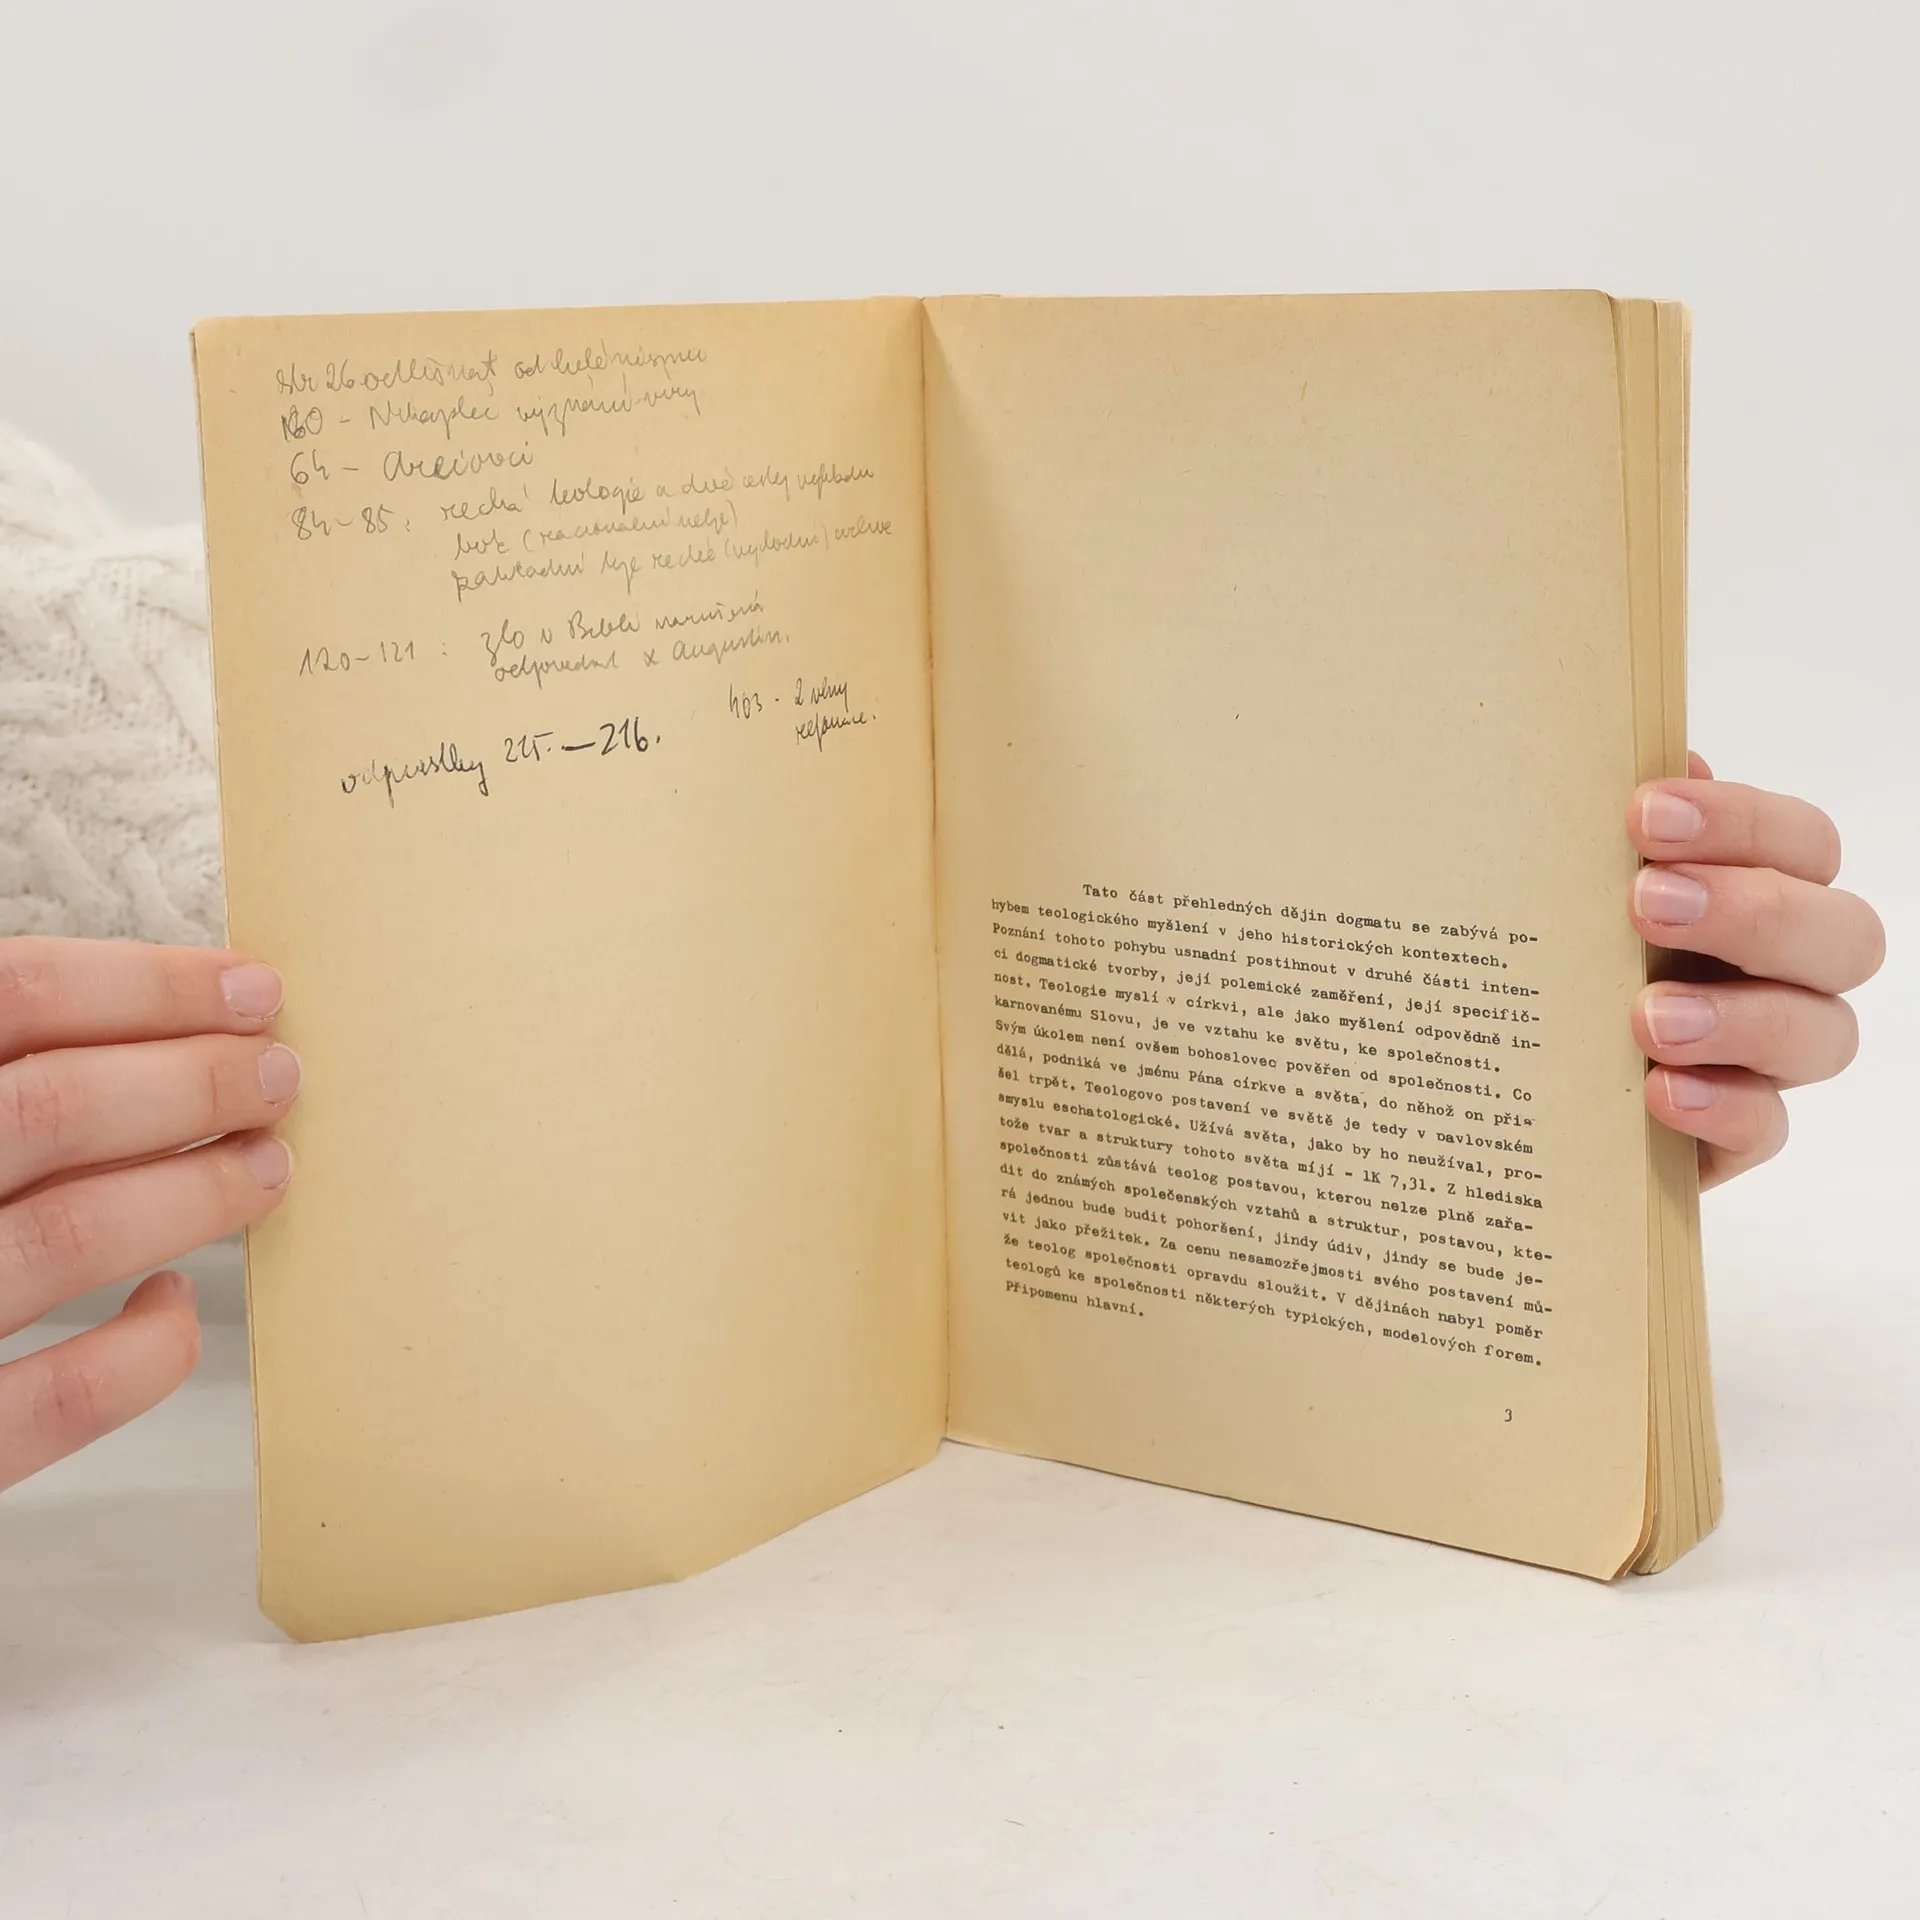 str 26 odlišnost od helénismu
- vyznání víry
64 - Areiovci
84-85: řecká teologie a dvě cesty
(racionální
základní
120-121: zlo v Bibli narušená
odpovědnost x Augustin.
403 - 2 vlny
reformace.
odpustky 215.-216.
Tato část přehledných dějin dogmatu se zabývá po-
hybem teologického myšlení v jeho historických kontextech.
Poznání tohoto pohybu usnadní postihnout v druhé části inten-
ci dogmatické tvorby, její polemické zaměření, její specifič-
nost. Teologie myslí v církvi, ale jako myšlení odpovědně in-
karnovanému Slovu, je ve vztahu ke světu, ke společnosti.
Svým úkolem není ovšem bohoslovec pověřen od společnosti. Co
dělá, podniká ve jménu Pána církve a světa, do něhož on při-
šel trpět. Teologovo postavení ve světě je tedy v pavlovském
smyslu eschatologické. Užívá světa, jako by ho neužíval, pro-
tože tvar a struktury tohoto světa míjí - 1K 7,31. Z hlediska
společnosti zůstává teolog postavou, kterou nelze plně zařa-
dit do známých společenských vztahů a struktur, postavou, kte-
rá jednou bude budit pohoršení, jindy údiv, jindy se bude je-
vit jako přežitek. Za cenu nesamozřejmosti svého postavení mů-
že teolog společnosti opravdu sloužit. V dějinách nabyl poměr
teologů ke společnosti některých typických, modelových forem.
Připomenu hlavní.
3